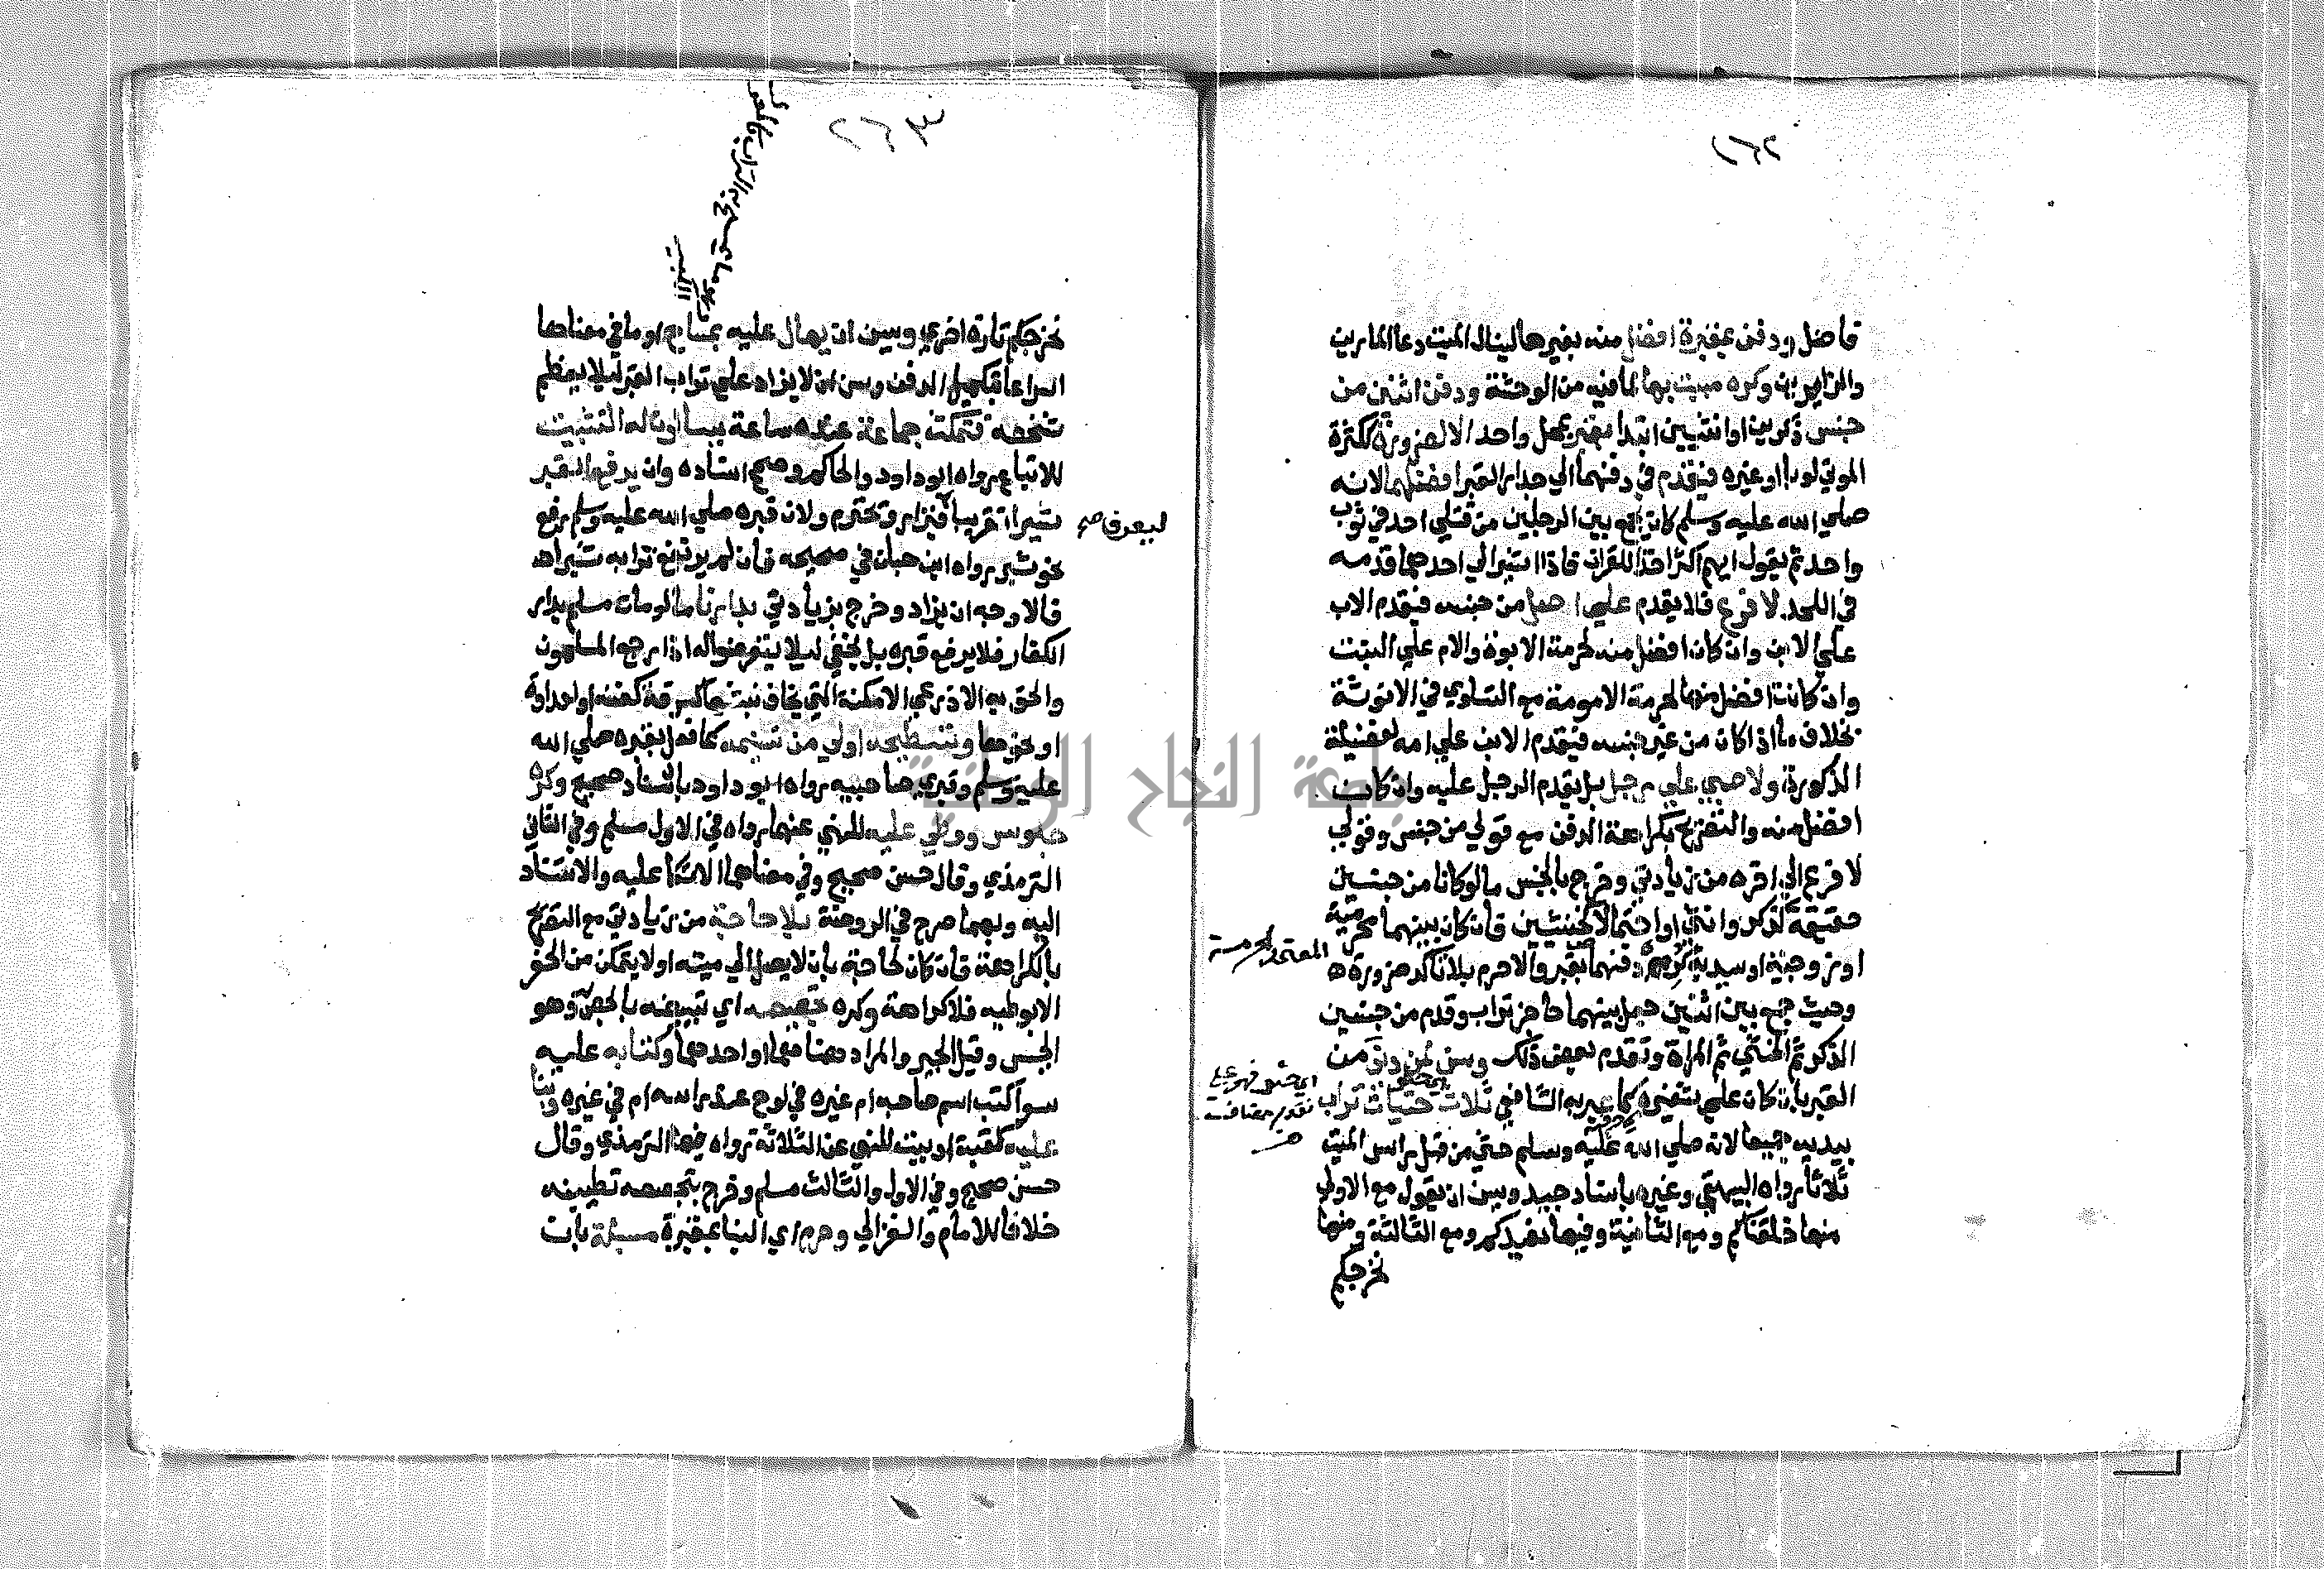 ٢٦٢
فاضل ودفن بمقبرة افضل منه بغيرها لينال الميت دعا المارين
والزايرين وكره مبيت بها لما فيه من الوحشة ودفن اثنين من
جنس ذكرين او انثيين ابتدا بقبر بمحل واحد الا لضرورة ككثرة
الموتي لوبا او غيره فيقدم في دفنهما الي جدار القبر افضلهما لانه
صلي الله عليه وسلم كان يجمع بين الرجلين من قتلي احد في ثوب
واحد ثم يقول ايهم اكثر اخذا للقران فاذا اشير الي احدهما قدمه
في اللحد لا فرع فلا يقدم علي اصل من جنسه فيقدم الاب
علي الابن وان كان افضل منه لحرمة الابوة والام علي البنت
وان كانت افضل منها لحرمة الامومة مع التساوي في الانوثة
بخلاف ما اذا كان من غير جنسه فيقدم الابن علي امه لفضيلة
الذكورة ولا صبي علي رجل بل يقدم الرجل عليه وان كان
افضل منه والتصريح بكراهة الدفن مع قولي من جنس وقولي
لا فرع الي اخره من زيادتي وخرج بالجنس ما لو كانا من جنسين
حقيقة كذكر وانثي او احتمالا كخنثيين فان كان بينهما محرمية
او زوجية او سيدية كره دفنهما بقبر والا حرم بلا تاكد ضرورة
المعتمد الحرمة
وحيث جمع بين اثنين جعل بينهما حاجز تراب وقدم من جنسين
الذكر ثم الخنثي ثم المراة وتقدم بعض ذلك وسن لمن دنا من
القبر بان كان علي شفيره كما عبر به الشافعي ثلاث حثيات تراب
اي حثي فهو علي
تقدير مضاف
بيديه جميعا لانه صلي الله عليه وسلم حثي من قبل راس الميت
ثلاثا رواه البيهقي وغيره باسناد جيد وسن ان يقول مع الاولي
منها خلقناكم ومع الثانية وفيها نعيدكم ومع الثالثة ومنها
نخرجكم
٢٦٣
نخرجكم تارة اخري وسن ان يهال عليه بمساحي او ما في معناها
اسراعا بتكميل الدفن وسن ان لا يزاد علي تراب القبر ليلا يعظم
شخصه فتمكث جماعة عنده ساعة يسالون له التثبيت
للاتباع رواه ابو داود والحاكم وصحح اسناده وان يرفع القبر
شبرا تقريبا فيزار ويحترم ولان قبره صلي الله عليه وسلم رفع
ليعرف صح
نحو شبر رواه ابن حبان في صحيحه فان لم يرتفع ترابه شبرا
فالاوجه ان يزاد وخرج بزيادتي بدارنا ما لو مات مسلم بدار
الكفار فلا يرفع قبره بل يخفي ليلا يتعرضوا له اذا رجع المسلمون
والحق به الاذرعي الامكنة التي يخاف نبشها لسرقة كفنه او لعداوة
او نحوهما وتسطيحه اولي من تسنيمه كما فعل بقبره صلي الله
عليه وسلم وقبري صاحبيه رواه ابو داود باسناد صحيح وكره
جلوس ووطي عليه للنهي عنهما رواه في الاول مسلم وفي الثاني
الترمذي وقال حسن صحيح وفي معناهما الاتكا عليه والاستناد
اليه وبهما صرح في الروضة بلا حاجة من زيادتي مع التصريح
بالكراهة فان كان لحاجة بان لا يصل الي ميته او لا يتمكن من الحفر
الا بوطيه فلا كراهة وكره تجصيصه اي تبييضه بالجص وهو
الجبس وقيل الجير والمراد هنا هما او احدهما وكتابه عليه
سوا كتب اسم صاحبه ام غيره في لوح عند راسه ام في غيره وبنا
عليه كقبة او بيت للنهي عن الثلاثة رواه فيها الترمذي وقال
حسن صحيح وفي الاول والثالث مسلم وخرج بتجصيصه تطيينه
خلافا للامام والغزالي وحرم اي البنا بمقبرة مسبلة بان
جامعة النجاح الوطنية